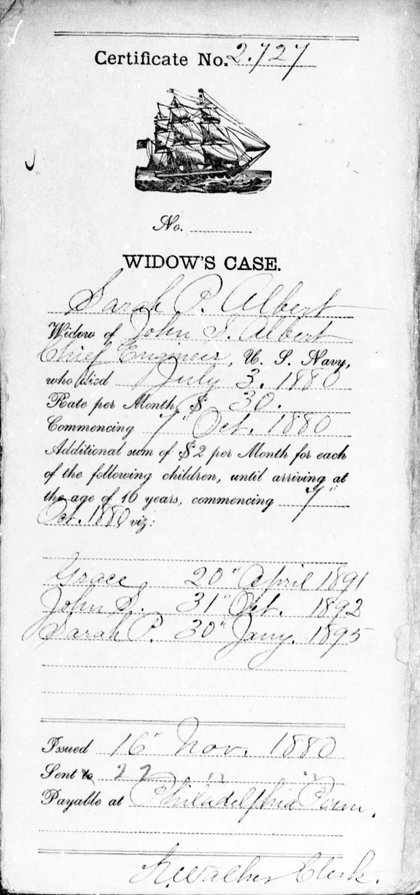 Certificate No. 2.727
No.
WIDOW'S CASE.
Sarah P. Albert
Widow of John S. Albert
Chief Engineer, U. S. Navy,
who died July 3. 1880
Rate per Month, $ 30.
Commencing 7" Oct. 1880
Additional sum of $2 per Month for each
of the following children, until arriving at
the age of 16 years, commencing 7"
Oct. 1880 viz:
Grace, 20" April 1891
John S. 31" Oct. 1892
Sarah P. 30" Jany. 1895
Issued 16" Nov. 1880
Sent to 22 " "
Payable at Philadelphia Penn.
Clerk.